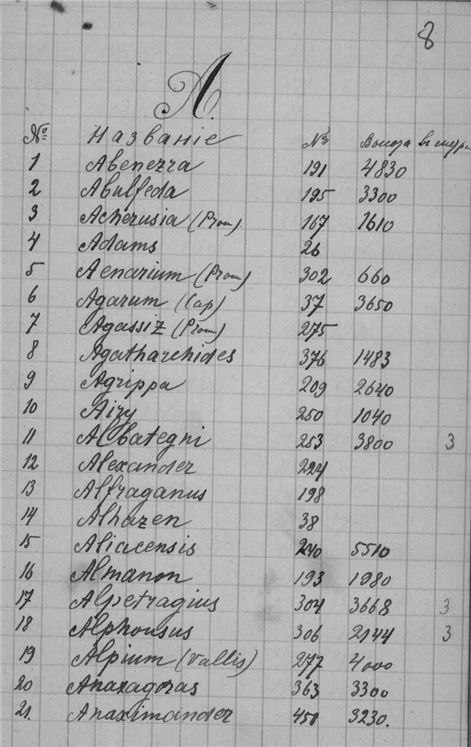 8
А.
№ Названіе № Высота въ метр.
1 Abenezra 191 4830
2 Abulfeda 195 3300
3 Acherusia (Prom) 167 1610
4 Adams 26
5 Aenarium (Prom) 302 660
6 Agarum (Cap) 37 3650
7 Agassiz (Prom) 275
8 Agatharchides 376 1483
9 Agrippa 209 2640
10 Airy 250 1040
11 Albategni 253 3800 3
12 Alexander 224
13 Alfraganus 198
14 Alhazen 38
15 Aliacensis 240 5510
16 Almanon 193 1980
17 Alpetragius 304 3668 3
18 Alphonsus 306 2144 3
19 Alpium (Vallis) 277 4000
20 Anaxagoras 363 3300
21. Anaximander 451 3230.